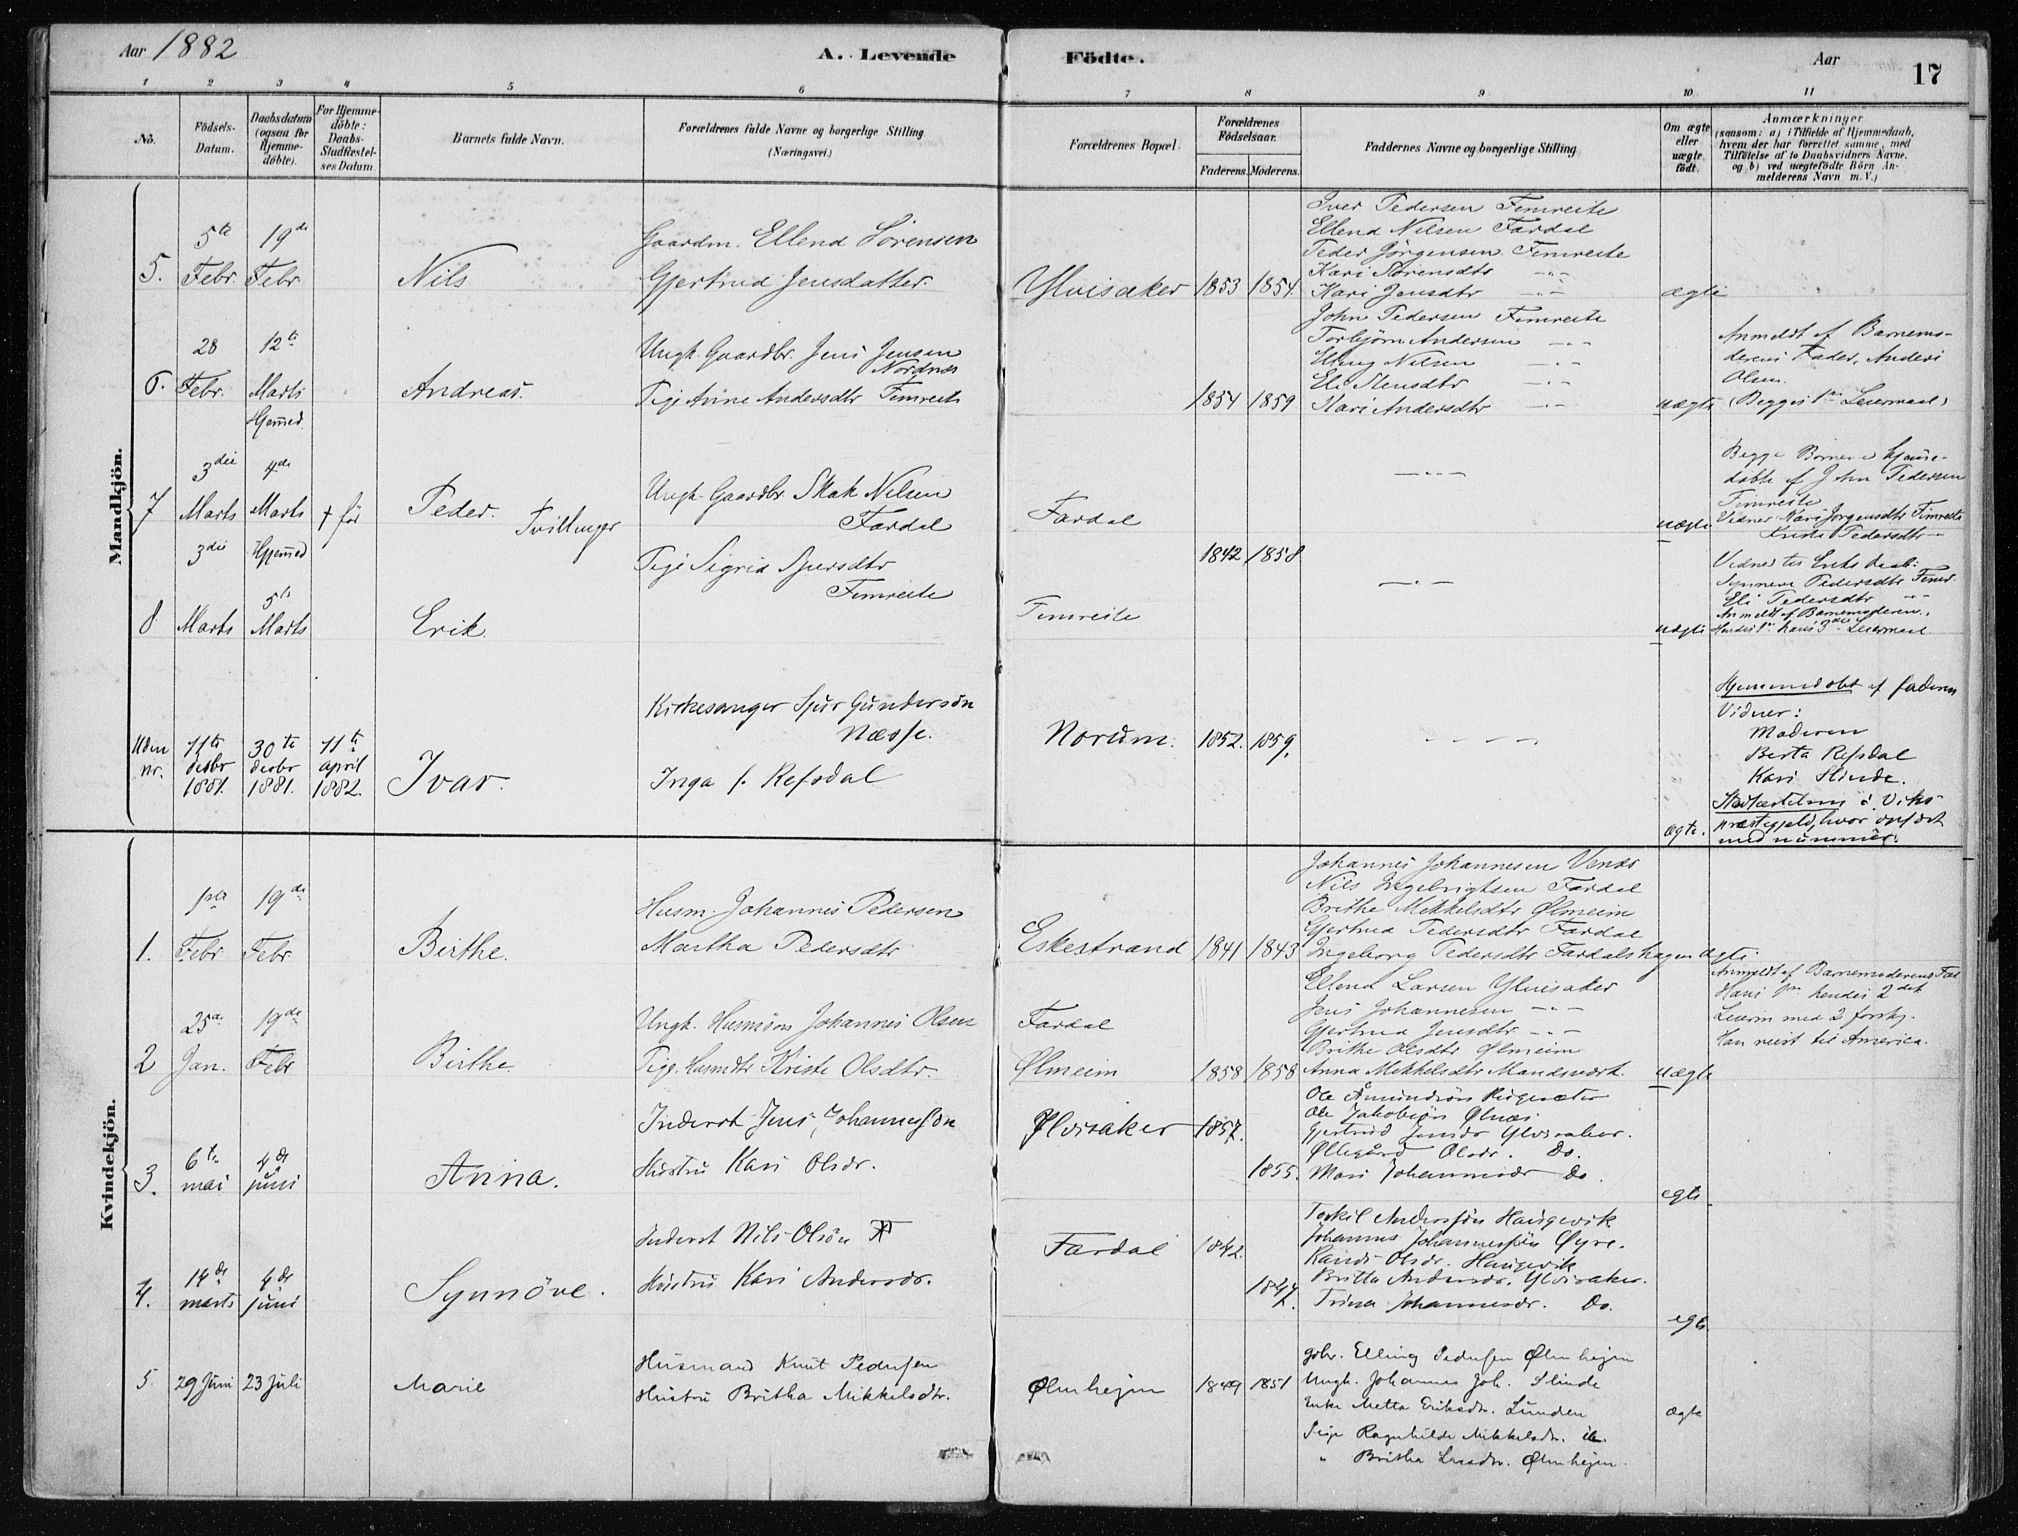 Aar 1882
A. Levende Födte.
Aar
17
1 2 3 4 5 6 7 8 9 10 11
No.
Födsels-
Datum.
Daabsdatum
(ogsaa for
Hjemme-
döbte).
For Hjemme-
döbte:
Daabs-
Stadfæstel-
ses Datum
Barnets fulde Navn.
Forældrenes fulde Navne og borgerlige Stilling
(Næringsvei.)
Forældrenes Bopæl.
Forældrenes
Födselsaar.
Faderens. Moderens.
Faddernes Navne og borgerlige Stilling
Om ægte
eller
uægte
födt.
Anmærkninger
(saasom: a) i Tilfælde af Hjemmedaab,
hvem der har forrettet samme, med
Tilföielse af to Daabsvidners Navne.
og b) ved uægtefödte Börn An-
melderens Navn m. V.)
Mandkjön.
5.
5te
Febr.
19de
Febr
Nils
Gaardm. Ellend Sörensen
Gjertrud Jensdatter.
Ylvisaker
1853
1854
Iver Pedersen Fimreite
Ellend Nilsen Fardal
Peder Jörgensen Fimreite
Kari Sörensdtr -"-
Kari Jensdtr -"-
ægte
6.
28
Febr.
12te
Marts
Andreas.
Ungk. Gaardbr. Jens Jensen
Nordnæs
Pige Anne Andersdtr Fimreite
1854
1859
John Pedersen Fimreite
Torbjörn Andersen -"-
Elling Nilsen -"-
Eli Stensdtr -"-
Kari Andersdtr -"-
uægte
Anmeldt af Barnemo-
derens Fader, Anders
Olsen.
(Begges 1ste Leiermaal)
7
3die
Marts
Hjemmed
4de
Marts
+ för
Peder.
Tvillinger
Ungk. Gaardbr Skak Nilsen
Fardal
Fardal
-"-
uægte
Begge Börnene hjemme-
döbte af John Pedersen
Fimreite
Vidner Kari Jörgensdtr Fimreite
Kristi Pedersdtr -
8
3die
Marts
Hjemmed
5te
Marts
Erik
Pige Sigrid Sjursdtr
Fimreite
Fimreite
1842
1858
-"-
uægte
Vidner til Eriks daab:
Synneve Pedersdtr Fimr.
Eli Pedersdtr -"-
Anmeldt af Barnemoderen.
Hendes 1ste hans 3die Leiermaal
Uden
nr.
11te
desbr
1881.
30te
desbr
1881.
11te
april
1882.
Ivar.
Kirkesanger Sjur Gunderson
Næsse.
Inga f. Refsdal
Norum.
1852.
1859.
- - - -
ægte.
Hjemmedöbt af faderen
Vidner:
Moderen
Berta Refsdal
Kari Slinde.
Stadfæstelsen i Viks
præstegjeld, hvor opfört
med nummer.
Kvindekjön.
1.
1ste
Febr
19de
Febr.
Birthe.
Husm. Johannes Pedersen
Martha Pedersdtr
Eskestrand
1841
1843
Johannes Johannesen Venæs
Nils Ingebrigtsen Fardal
Brithe Mikkelsdtr Ølmeim
Gjertrud Pedersdtr Fardal
Ingeborg Pedersdtr Fardalshagen
ægte.
2
25de
Jan.
19de
Febr
Birthe
Ungk. Husmsøn Johannes Olsen
Pige. Husmdtr Kriste Olsdtr.
Fardal
Ølmeim
1858
1858
Ellend Larsen Ylvisaker
Jens Johannesen -"-
Gjertrud Jensdtr -"-
Brithe Olsdtr Ølmeim
Anna Mikkelsdtr
uægte
Anmeldt af Barnemoderens Fad
Hans 1ste hendes 2det
Leierm med 2 forskj.
Han reist til America.
3.
6te
mai
4de
juni
Anna.
Inderst Jens Johannessön
Hustru Kari Olsdr.
Ylvisaker
1857.
1855.
Ole Åmundsön
Ole Jakobsön Ølnæs.
Gjertrud Jensdr Ylvisaker.
Øllegård Olsdr. Do.
Mari Johannesdr Do.
egte.
4.
14de
marts
4de
juni
Synnöve.
Inderst Nils Olsön
Hustru Kari Andersdr.
Fardal
1842.
1847.
Torkil Anderssön Haugevik
Johannes Johannessön Øyre.
Randi Olsdr. Haugevik
Britta Andersdr. Ylvisaker.
Trina Johannesdr. Do.
egte
5.
29 Juni
23 Juli
Marie
Husmand Knut Pedersen
Hustru Britha Mikkelsdtr.
Ølmhejm
1849
1851
gbr. Elling Pedersen Ølmhejm
Ungk. Johannes Joh. Slinde
Enke Metta Eriksdr. Lunden
Pige Ragnhilde Mikkelsdr. ib.
" Britha Larsdr. Ølmhejm.
ægte